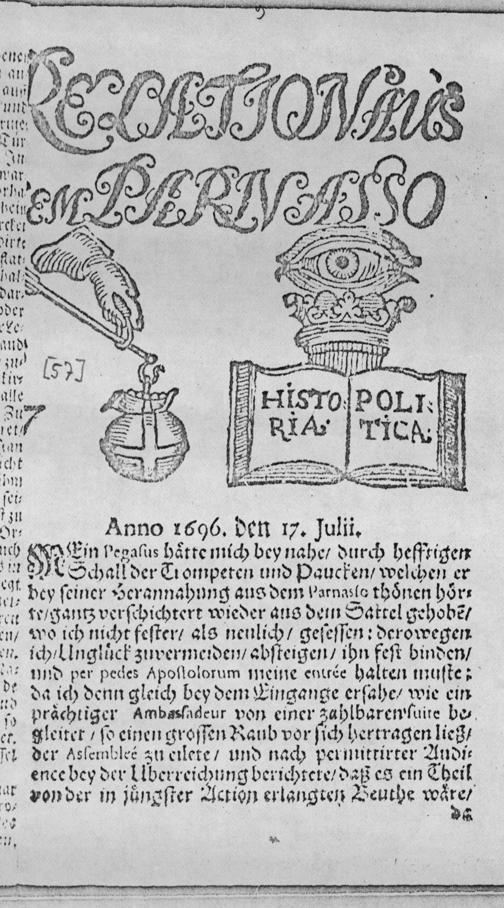 RELATIONAUS
EM PARNASSO
[57]
HISTO: POLI:
RIA. TICA.
Anno 1696. den 17. Julii.
MEin Pegasus hätte mich bey nahe/ durch hefftigen
Schall der Trompeten und Paucken/ welchen er
bey seiner Herannahung aus dem Parnasso thönen hör-
te/ gantz verschichtert wieder aus dem Sattel gehobẽ/
wo ich nicht fester/ als neulich/ gesessen: derowegen
ich/ Unglück zuvermeiden/ absteigen/ ihn fest binden/
und per pedes Apostolorum meine entrée halten muste;
da ich denn gleich bey dem Eingange ersahe/ wie ein
prächtiger Ambassadeur von einer zahlbaren suite be-
gleitet/ so einen grossen Raub vor sich hertragen ließ/
der Assembleé zu eilete/ und nach permittirter Audi-
ence bey der Uberreichung berichtete/ daß es ein Theil
von der in jüngster Action erlangten Beuthe wäre/